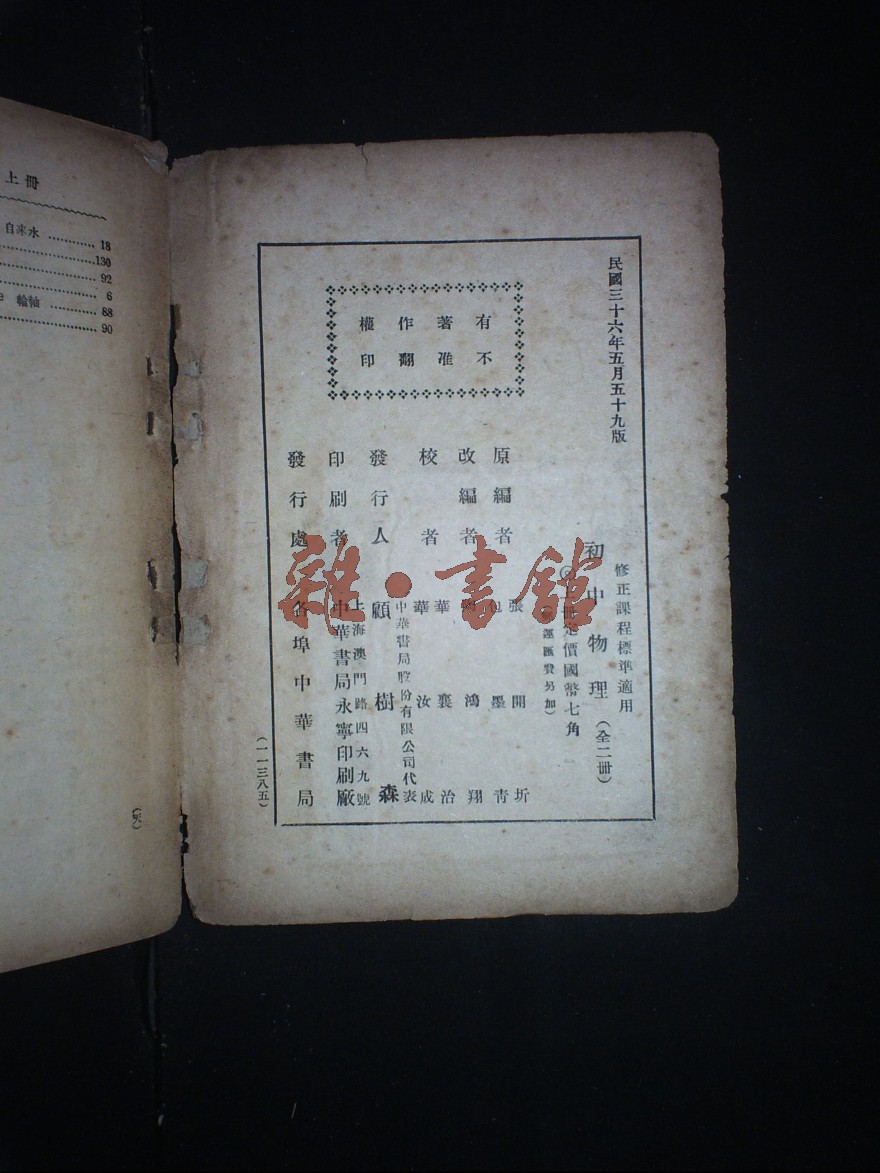 民國三十六年五月五十九版
有著作權
不准翻印
修正課程標準適用
初中物理（全二冊）
冊定價國幣七角
匯費另加）
原編者 張開圻
包墨青
改編者 鴻翔
校者 華襄治
華汝成
發行人 中華書局股份有限公司代表
顧樹森
印刷者 上海澳門路四六九號
中華書局永寧印刷廠
發行處 各埠中華書局
（一一三八五）
雜·書館
上冊
自來水 ………… 18
130
92
6
輪軸 ………… 88
90